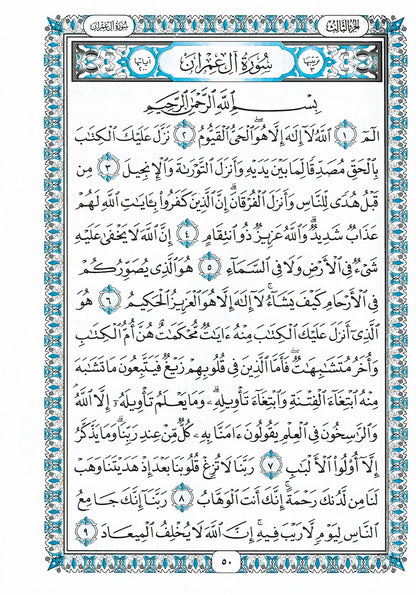 سُورَةُ آلِ عِمْرَانَ
الجُزْءُ الثَّالِثُ
ترتيبها ٣
سُورَةُ آلِ عِمْرَانَ
آياتها ٢٠٠
بِسْمِ اللَّهِ الرَّحْمَٰنِ الرَّحِيمِ
الٓمٓ ١ ٱللَّهُ لَآ إِلَٰهَ إِلَّا هُوَ ٱلْحَىُّ ٱلْقَيُّومُ ٢ نَزَّلَ عَلَيْكَ ٱلْكِتَٰبَ
بِٱلْحَقِّ مُصَدِّقًا لِّمَا بَيْنَ يَدَيْهِ وَأَنزَلَ ٱلتَّوْرَىٰةَ وَٱلْإِنجِيلَ ٣ مِن
قَبْلُ هُدًى لِّلنَّاسِ وَأَنزَلَ ٱلْفُرْقَانَ ۗ إِنَّ ٱلَّذِينَ كَفَرُوا۟ بِـَٔايَٰتِ ٱللَّهِ لَهُمْ
عَذَابٌ شَدِيدٌ ۗ وَٱللَّهُ عَزِيزٌ ذُو ٱنتِقَامٍ ٤ إِنَّ ٱللَّهَ لَا يَخْفَىٰ عَلَيْهِ
شَىْءٌ فِى ٱلْأَرْضِ وَلَا فِى ٱلسَّمَآءِ ٥ هُوَ ٱلَّذِى يُصَوِّرُكُمْ
فِى ٱلْأَرْحَامِ كَيْفَ يَشَآءُ ۚ لَآ إِلَٰهَ إِلَّا هُوَ ٱلْعَزِيزُ ٱلْحَكِيمُ ٦ هُوَ
ٱلَّذِىٓ أَنزَلَ عَلَيْكَ ٱلْكِتَٰبَ مِنْهُ ءَايَٰتٌ مُّحْكَمَٰتٌ هُنَّ أُمُّ ٱلْكِتَٰبِ
وَأُخَرُ مُتَشَٰبِهَٰتٌ ۖ فَأَمَّا ٱلَّذِينَ فِى قُلُوبِهِمْ زَيْغٌ فَيَتَّبِعُونَ مَا تَشَٰبَهَ
مِنْهُ ٱبْتِغَآءَ ٱلْفِتْنَةِ وَٱبْتِغَآءَ تَأْوِيلِهِۦ ۗ وَمَا يَعْلَمُ تَأْوِيلَهُۥٓ إِلَّا ٱللَّهُ ۗ
وَٱلرَّٰسِخُونَ فِى ٱلْعِلْمِ يَقُولُونَ ءَامَنَّا بِهِۦ كُلٌّ مِّنْ عِندِ رَبِّنَا ۗ وَمَا يَذَّكَّرُ
إِلَّآ أُو۟لُوا۟ ٱلْأَلْبَٰبِ ٧ رَبَّنَا لَا تُزِغْ قُلُوبَنَا بَعْدَ إِذْ هَدَيْتَنَا وَهَبْ
لَنَا مِن لَّدُنكَ رَحْمَةً ۚ إِنَّكَ أَنتَ ٱلْوَهَّابُ ٨ رَبَّنَآ إِنَّكَ جَامِعُ
ٱلنَّاسِ لِيَوْمٍ لَّا رَيْبَ فِيهِ ۚ إِنَّ ٱللَّهَ لَا يُخْلِفُ ٱلْمِيعَادَ ٩
٥٠